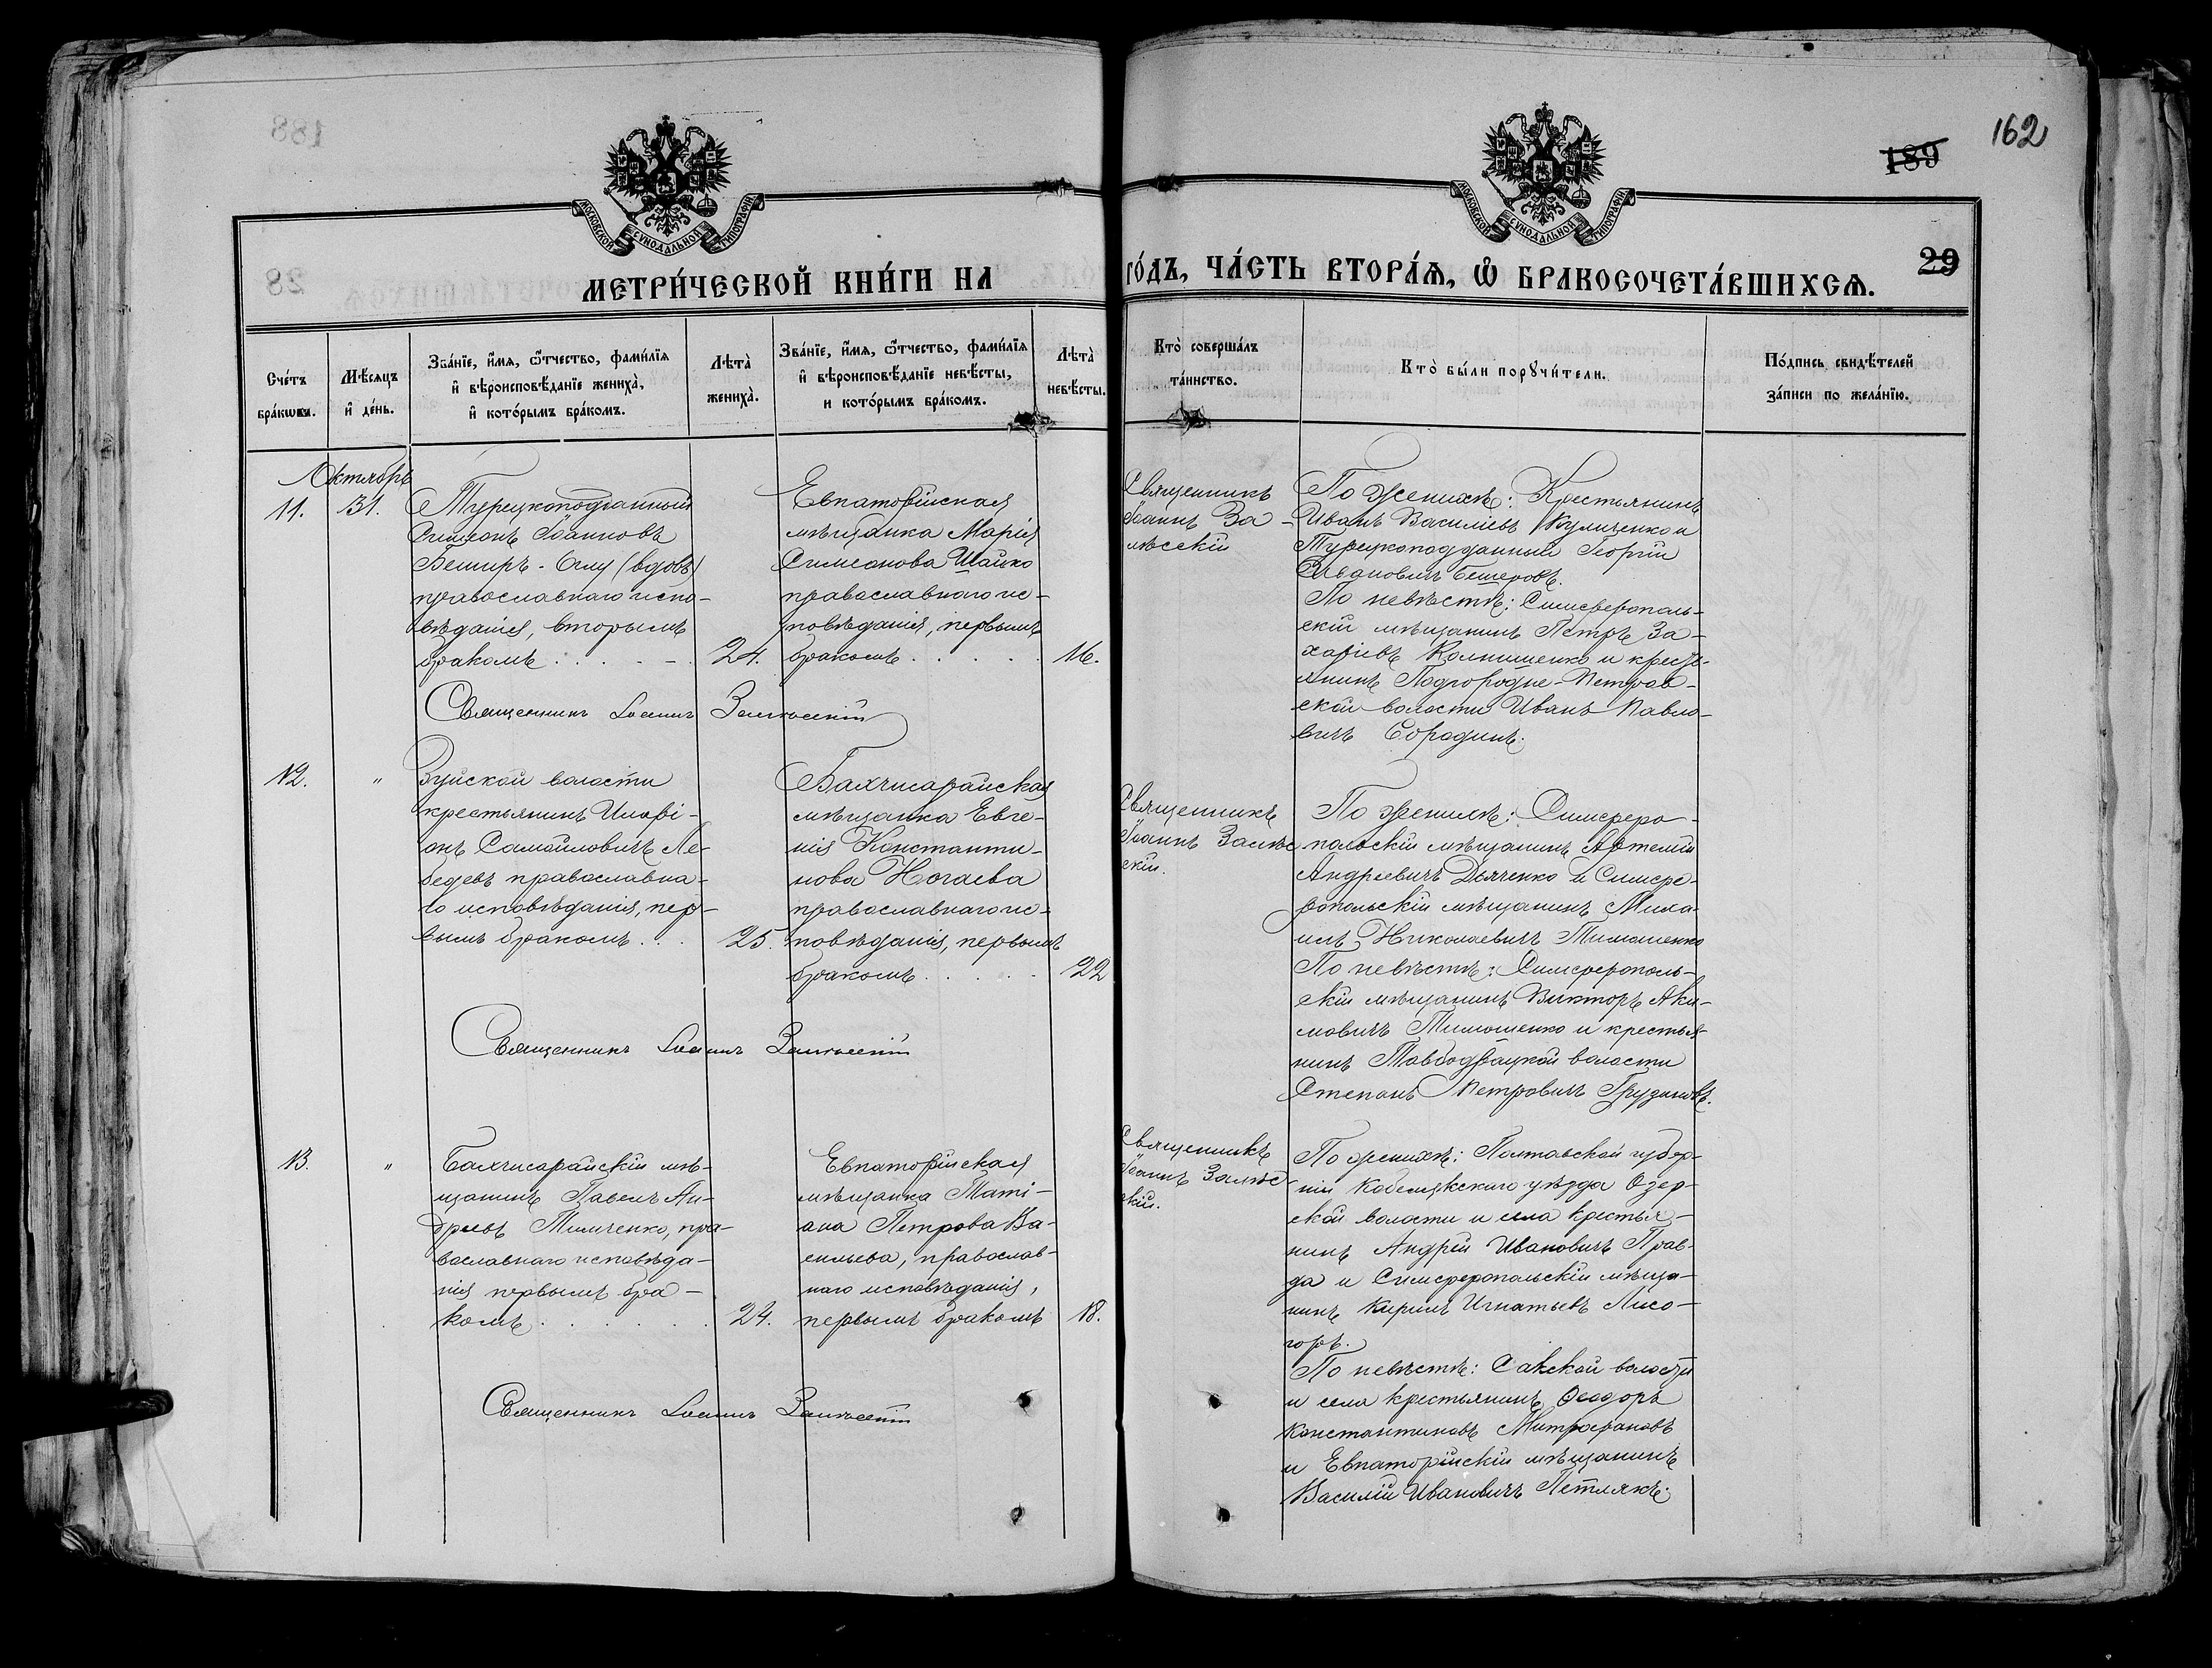 162
189
МОСКОВСКОЙ СѴНОДАЛЬНОЙ ТИПОГРАФІИ
МОСКОВСКОЙ СѴНОДАЛЬНОЙ ТИПОГРАФІИ
29
МЕТРИ́ЧЕСКОЙ КНИ́ГИ НА
ГО́ДЪ, ЧА́СТЬ ВТОРА́Ѧ, Ѽ БРАКОСОЧЕТА́ВШИХСѦ.
Сче́тъ
бра́кѡвъ.
Мѣ́сѧцъ
и҆ де́нь.
Зва́нїе, и҆́мѧ, ѻ҆́тчество, фами́лїѧ
и҆ вѣроисповѣ́данїе жениха̀,
и҆ кото́рымъ бра́комъ.
Лѣ́та
жениха̀.
Зва́нїе, и҆́мѧ, ѻ҆́тчество, фами́лїѧ
и҆ вѣроисповѣ́данїе невѣ́сты,
и кото́рымъ бра́комъ.
Лѣ́та
невѣ́сты.
Кто̀ соверша́лъ
та́инство.
Кто̀ бы́ли порꙋчи́тели.
По́дпись свидѣ́телей
за́писи по жела́нїю.
Октябрь
11.
31.
Турецкоподданный
Симеонъ Іоанновъ
Беширъ-Оглу (вдовъ)
православнаго испо-
вѣданія, вторымъ
бракомъ . . . - .
24.
Евпаторійская
мѣщанка Марія
Симеонова Шайко
православнаго ис-
повѣданія, первымъ
бракомъ . . . . .
16.
Священникъ Іоаннъ Залѣсскій
Священникъ
Іоаннъ За-
лѣсскій
По женихѣ: Крестьянинъ
Иванъ Василіевъ и
Турецкоподданный Георгій
Ивановичъ Бешеровъ.
По невѣстѣ: Симферополь-
скій мѣщанинъ Петръ За-
харіевъ и кресть-
янинъ Подгородне-Петров-
ской волости Иванъ Павло-
вичъ
12.
"
Зуйской волости
крестьянинъ Иларі-
онъ Самойловичъ Ле-
бедевъ православна-
го исповѣданія, пер-
вымъ бракомъ . . .
25.
Бахчисарайская
мѣщанка Евге-
нія Константи-
нова Ногаева
православнаго ис-
повѣданія, первымъ
бракомъ . . . . .
22
Священникъ Іоаннъ Залѣсскій
Священникъ
Іоаннъ Залѣс
скій.
По женихѣ: Симферо-
польскій мѣщанинъ Артемій
Андреевичъ Дьяченко и Симфе-
ропольскій мѣщанинъ Миха-
илъ Николаевичъ Тимошенко
По невѣстѣ: Симферополь-
скій мѣщанинъ Викторъ Аки-
мовичъ Тимошенко и крестья-
нинъ волости
Степанъ Петровичъ Грузиновъ.
13.
"
Бахчисарайскій мѣ-
щанинъ Павелъ Ан-
дреевъ Тимченко, пра-
вославнаго исповѣда-
нія первымъ бра-
комъ . . . . . .
24.
Евпаторійская
мѣщанка Таті-
ана Петрова Ва-
сильева, православ-
наго исповѣданія,
первымъ бракомъ
18.
Священникъ Іоаннъ Залѣсскій
Священникъ
Іоаннъ Залѣс
скій.
По женихѣ: Полтавской губер-
ніи Кобелякскаго уѣзда Озер-
ской волости и села крестья-
нинъ Андрей Ивановичъ Прав-
да и Симферопольскій мѣща-
нинъ Кирилъ Игнатьевъ Лисо-
горъ.
По невѣстѣ: Сакской волости
и села крестьянинъ Ѳеодоръ
Константиновъ Митрофановъ
и Евпаторійскій мѣщанинъ
Василій Ивановичъ Петлякъ.